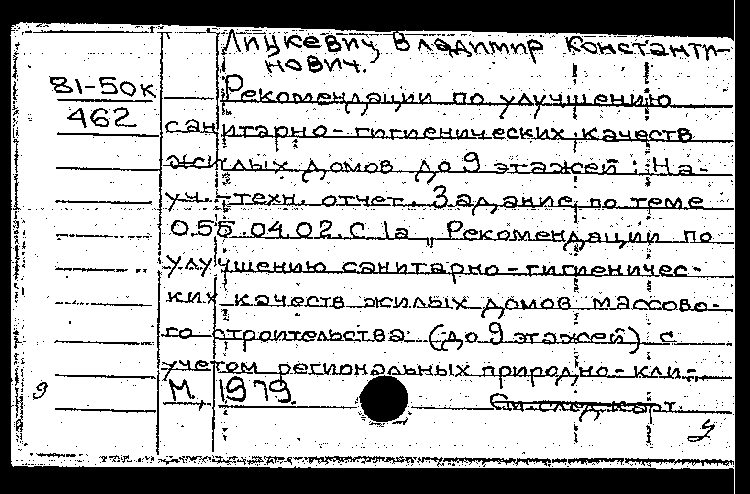 Лицкевич, Владимир Константи-
нович.
81-50к
462
Рекомендации по улучшению
санитарно-гигиенических качеств
жилых домов до 9 этажей : На-
уч.-техн. отчет. Задание по теме
0.55.04.02.С 1а „Рекомендации по
улучшению санитарно-гигиеничес-
ких качеств жилых домов массово-
го строительства (до 9 этажей) с
учетом региональных природно-кли-
М., 1979.
См. след. карт.
9
У